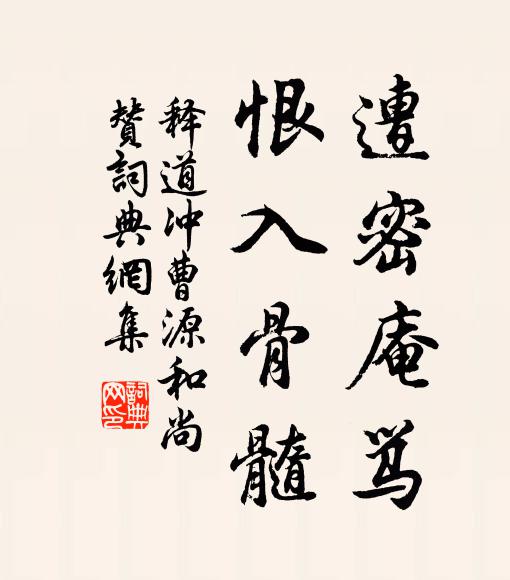 遭密庵骂
恨入骨髓
释道冲曹源和尚
赞詞典網集
詞典
网印